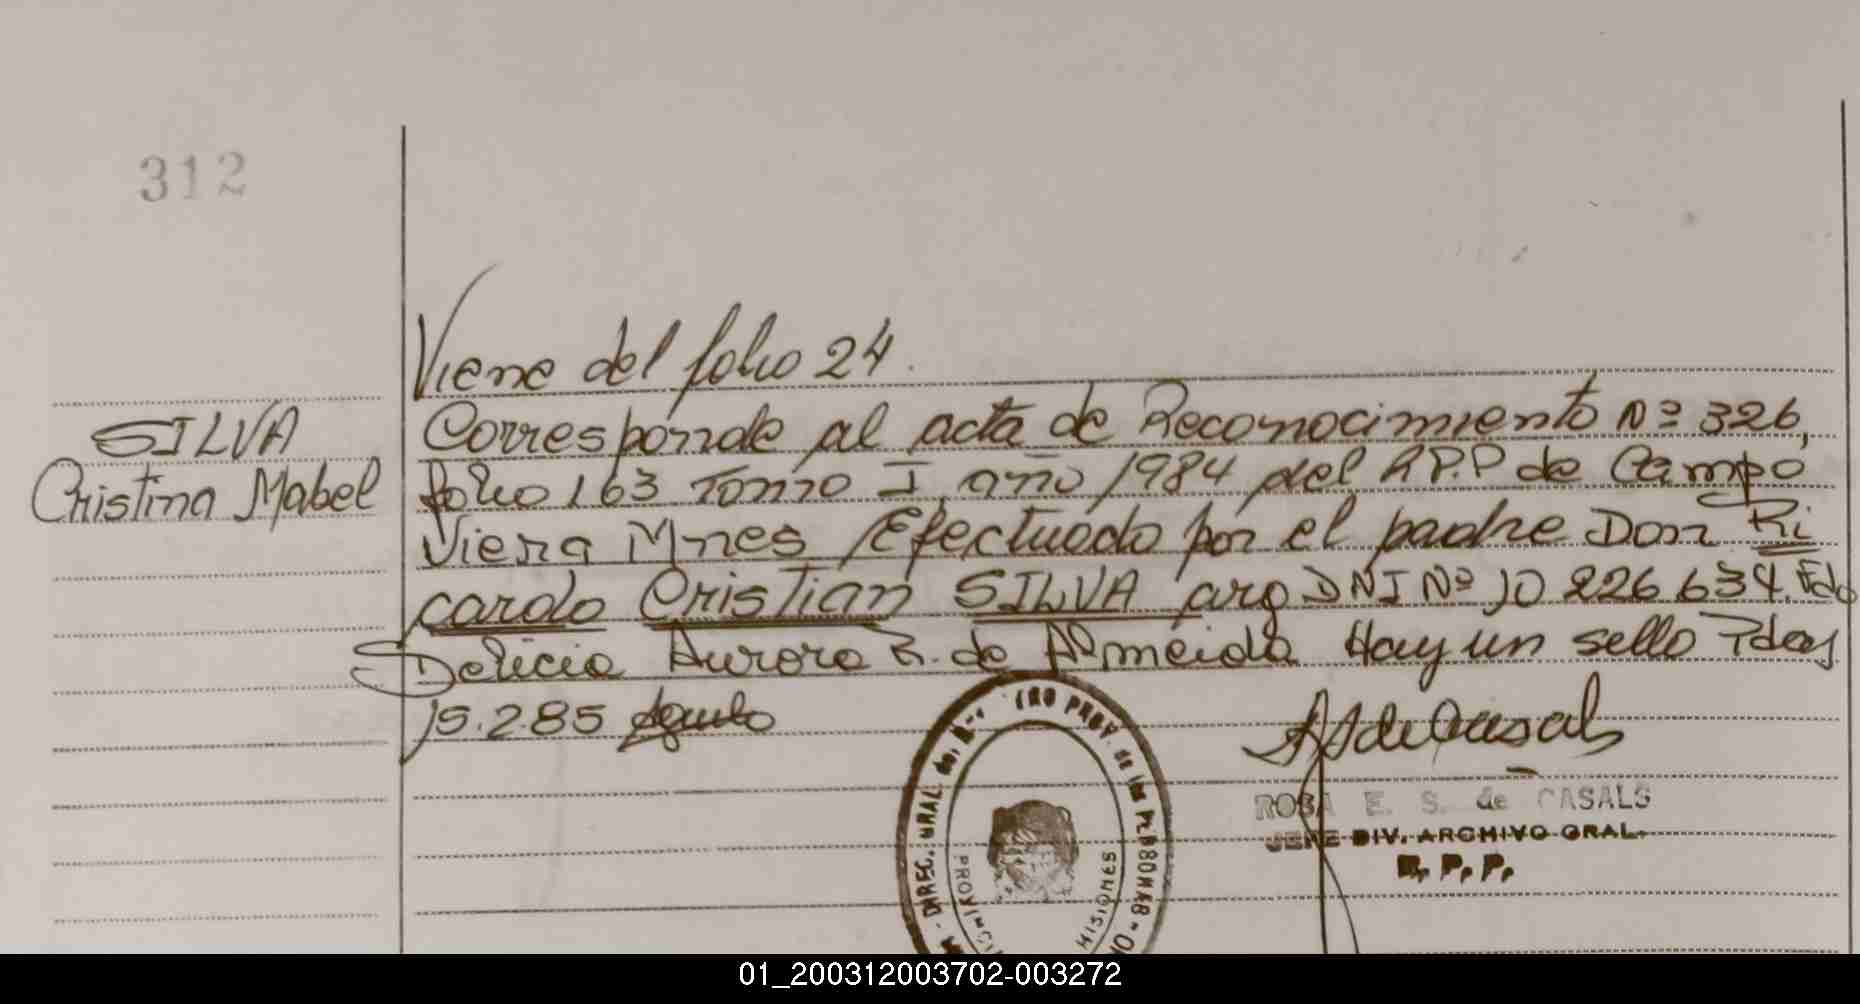 312
Viene del folio 24.
SILVA
Cristina Mabel
Corresponde al acta de Reconocimiento Nº 326,
folio 163 Tomo I, año 1984 del R.P.P de Campo
Viera Mnes Efectuado por el padre Don Ri
cardo Cristian SILVA arg DNI Nº 10 226.634. Fdo
Delicia Aurora R. de Almeida Hay un sello Pdas
15.2.85
ROSA E. S. de CASALS
JEFE DIV. ARCHIVO GRAL.
R. P. P.
DIREC. GRAL. del PROV. de las PERSONAS
PROVINCIA MISIONES
01_200312003702-003272